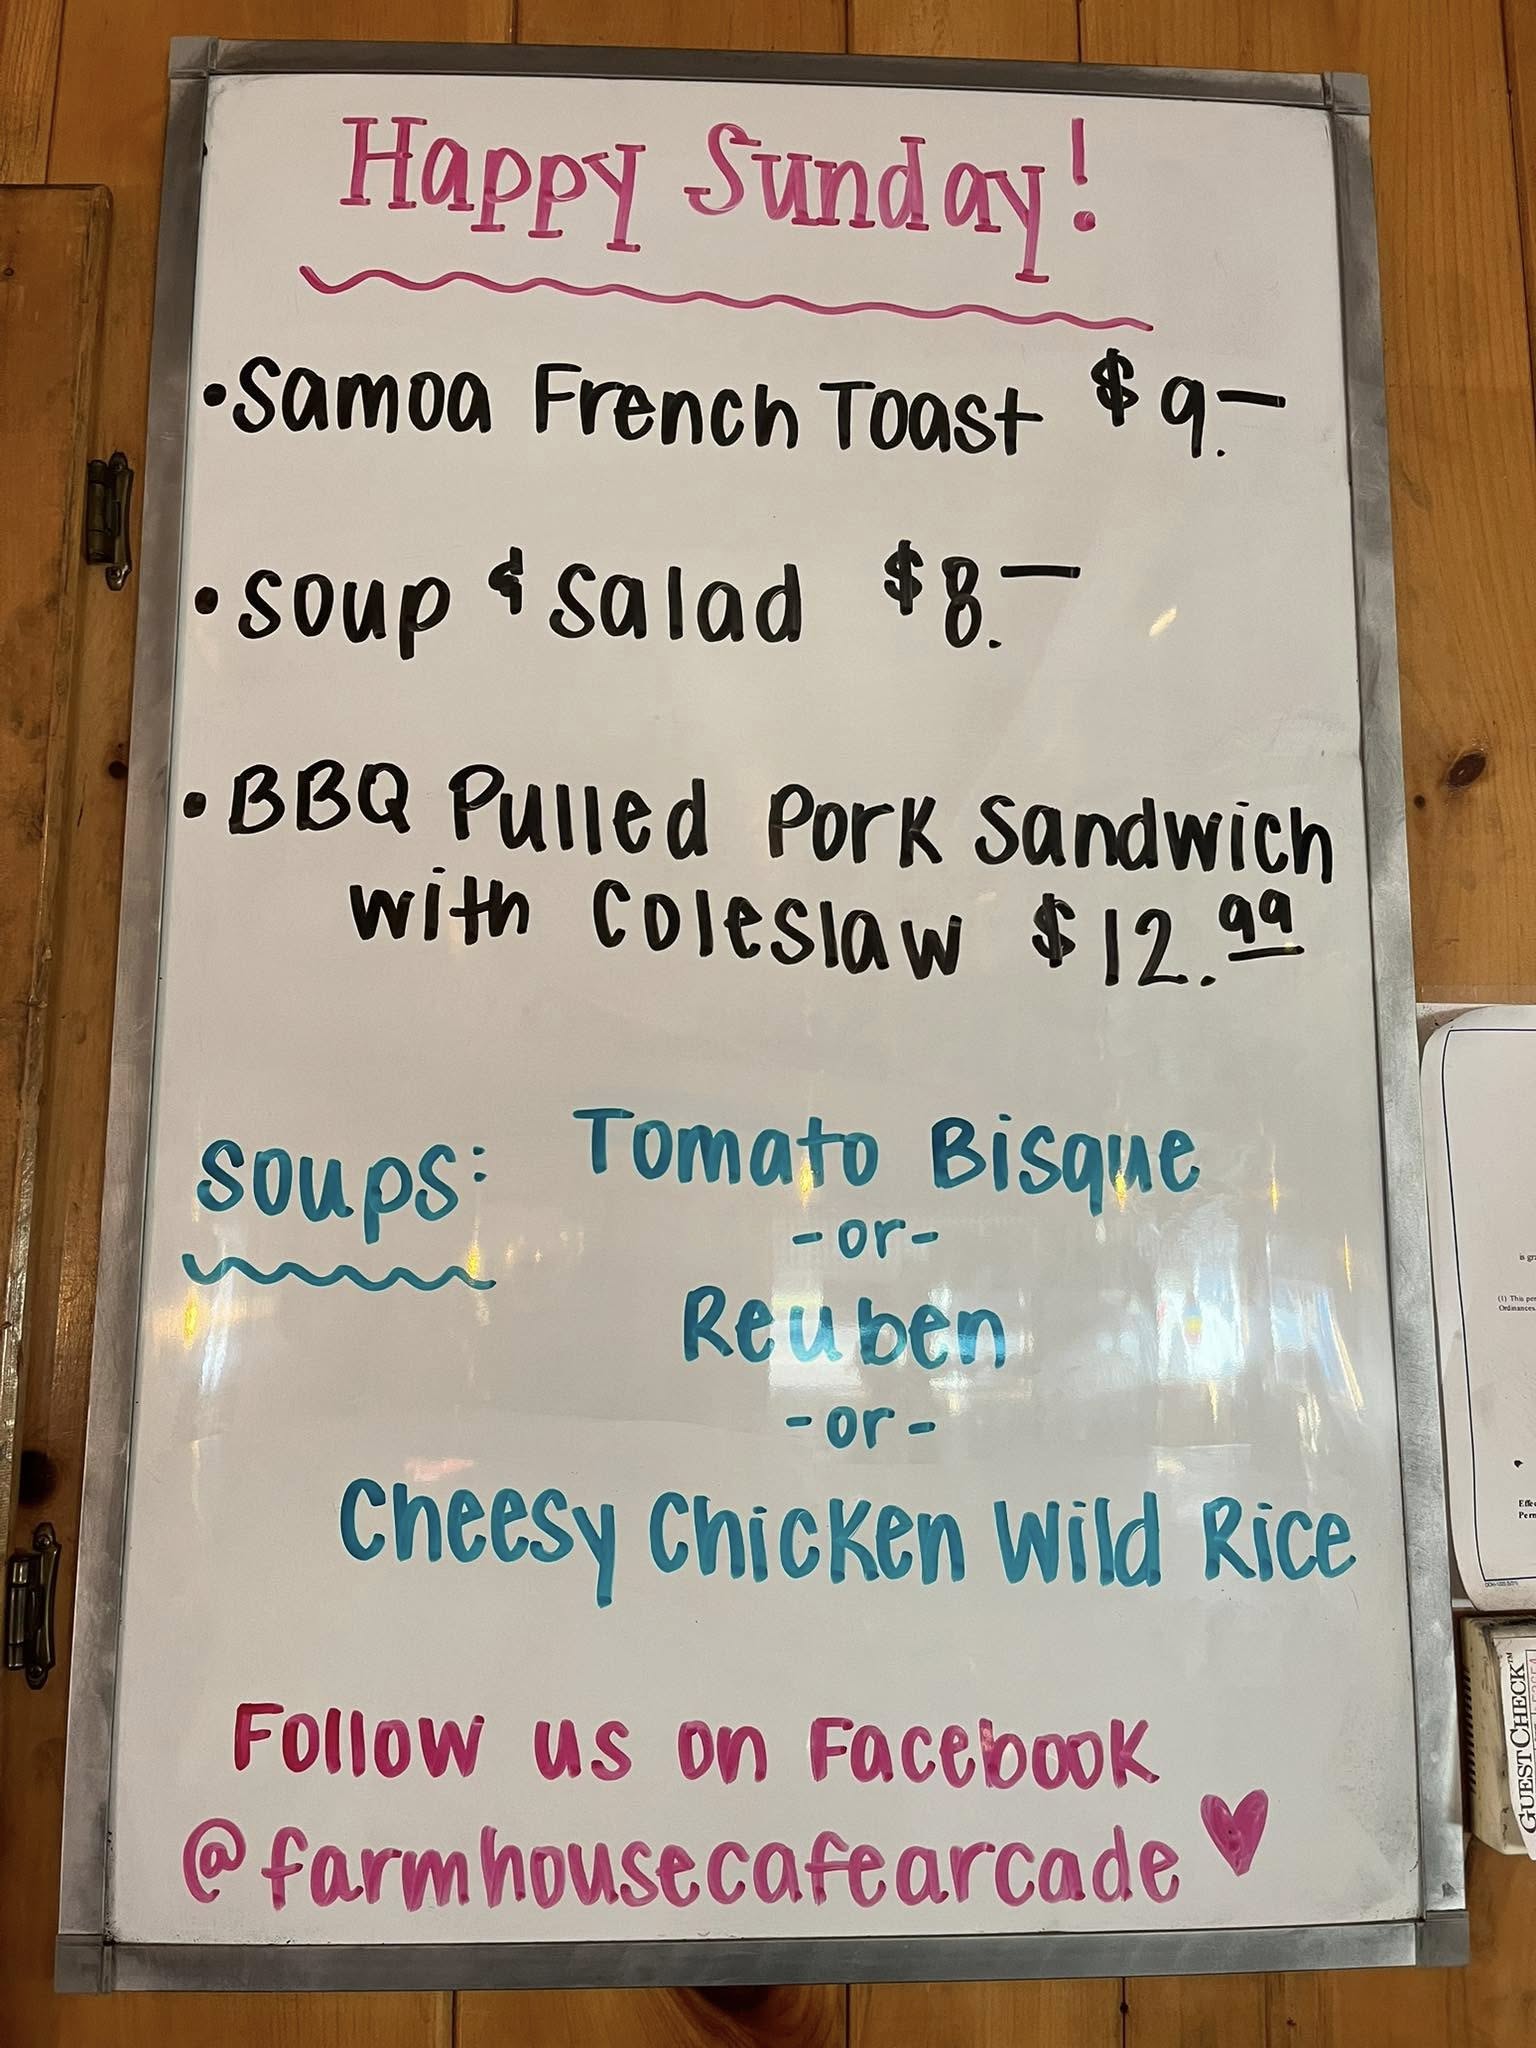 Happy Sunday!
• Samoa French Toast $9.—
• Soup & Salad $8.—
• BBQ Pulled Pork Sandwich
with Coleslaw $12.99
Soups: Tomato Bisque
-or-
Reuben
-or-
Cheesy Chicken Wild Rice
Follow us on Facebook
@farmhousecafearcade
is gr
(1) This per
Ordinances
Effec
Perm
GUESTCHECK™